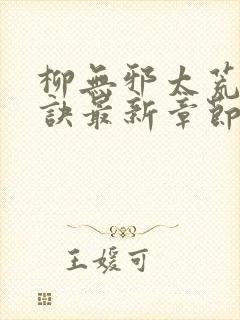 柳無邪太荒
訣最新章節
王媛可